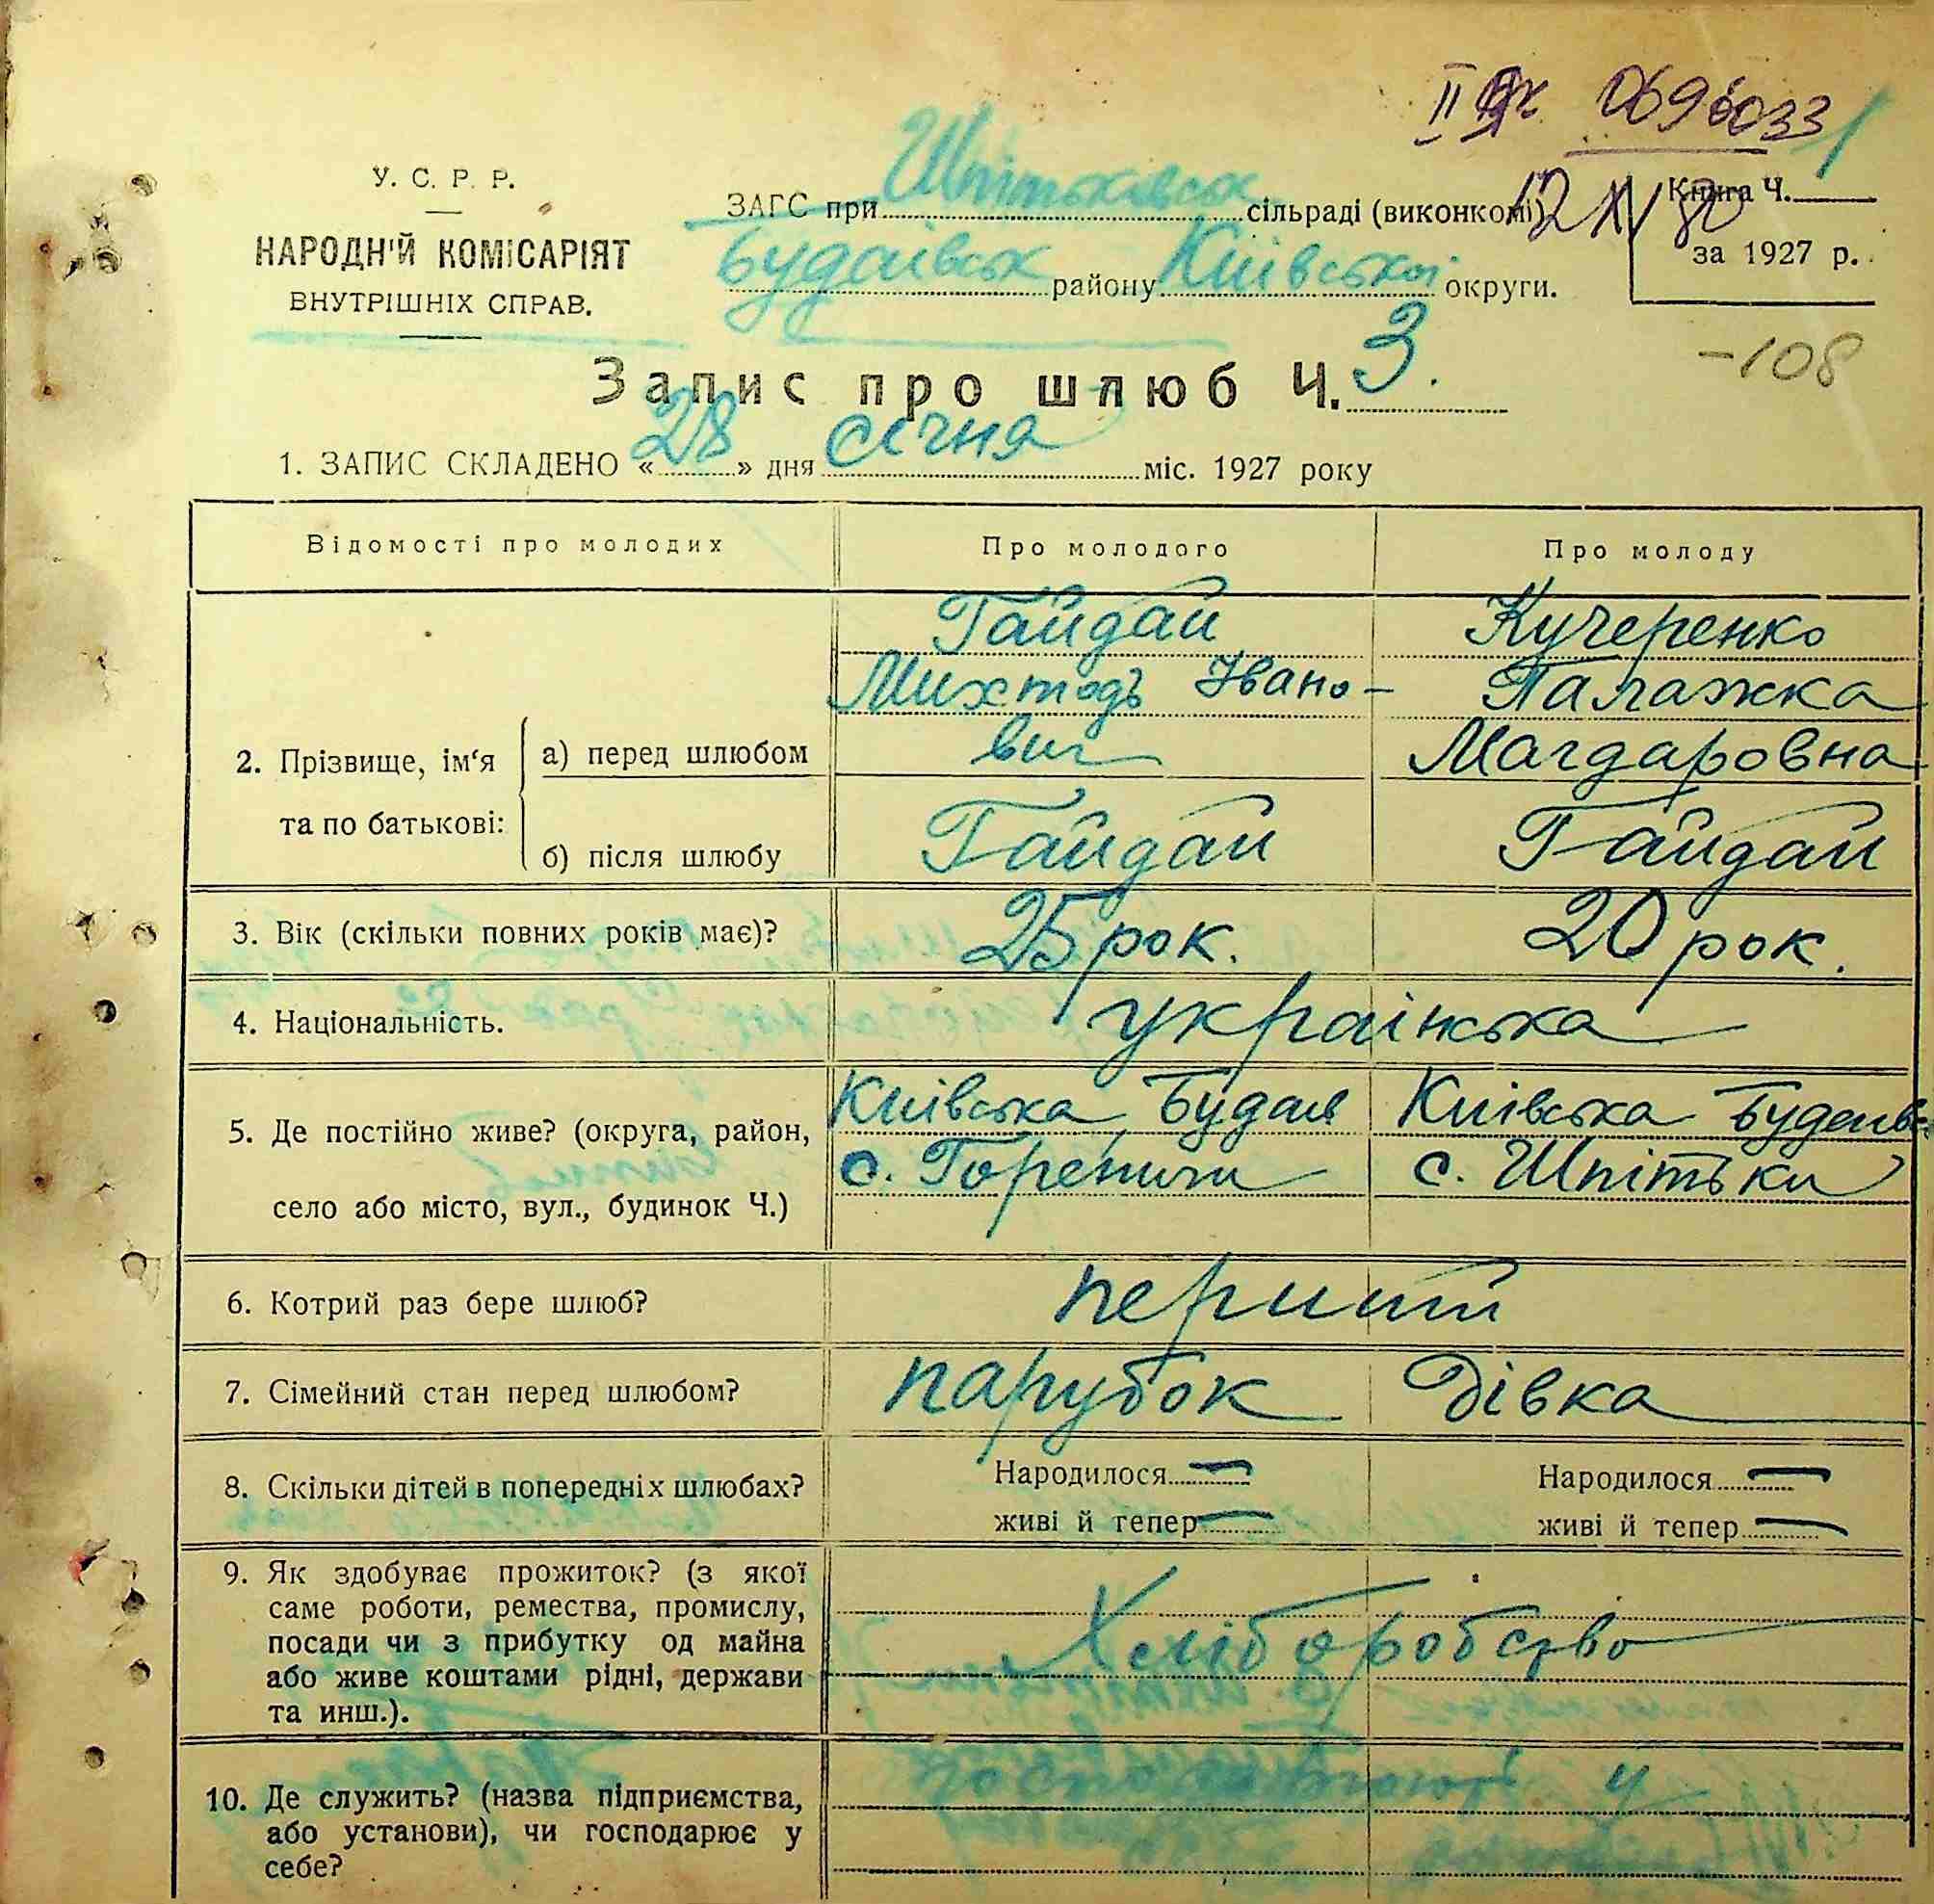 У. С. Р. Р.
НАРОДНІЙ КОМІСАРІЯТ
ВНУТРІШНІХ СПРАВ.
ЗАГС при Шпітьківськ сільраді (виконкомі)
Будаівськ району Київської округи.
Книга Ч. 1
за 1927 р.
-108
Запис про шлюб Ч. 3.
1. ЗАПИС СКЛАДЕНО «28» дня січня міс. 1927 року
Відомості про молодих Про молодого Про молоду
2. Прізвище, ім‘я та по батькові:
а) перед шлюбом
Гайдай
Михтодъ Івано-
вич
Кучеренко
Палажка
Магдаровна
б) після шлюбу Гайдай Гайдай
3. Вік (скільки повних років має)? 25 рок. 20 рок.
4. Національність. українська
5. Де постійно живе? (округа, район,
село або місто, вул., будинок Ч.)
Київська, Будаїв
с. Гореничи
Київська Будаївс
с. Шпітьки
6. Котрий раз бере шлюб? перший
7. Сімейний стан перед шлюбом? парубок дівка
8. Скільки дітей в попередніх шлюбах? Народилося — Народилося —
живі й тепер — живі й тепер —
9. Як здобуває прожиток? (з якої
саме роботи, ремества, промислу,
посади чи з прибутку од майна
або живе коштами рідні, держави
та инш.).
Хліборобство
10. Де служить? (назва підприємства,
або установи), чи господарює у
себе?